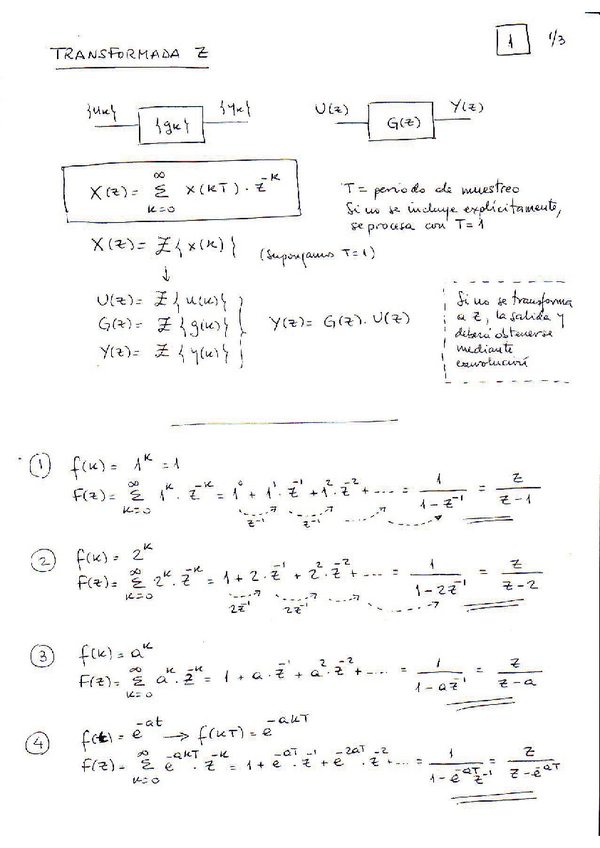 1 1/3
TRANSFORMADA Z
{uk} {gk} {yk} U(z) G(z) Y(z)
X(z) = ∞ Σ k=0 x(kT) · z^-k
T = periodo de muestreo
Si no se incluye explícitamente,
se procesa con T=1
X(z) = Z{x(k)} (Supongamos T=1)
↓
U(z) = Z{u(k)}
G(z) = Z{g(k)} Y(z) = G(z) · U(z)
Y(z) = Z{y(k)}
Si no se transforma
a Z, la salida y
deberá obtenerse
mediante
convolución
1 f(k) = 1^k = 1
F(z) = ∞ Σ k=0 1^k · z^-k = 1^0 + 1^1 · z^-1 + 1^2 · z^-2 + ---- = 1/(1 - z^-1) = z/(z-1)
z^-1 z^-1
2 f(k) = 2^k
F(z) = ∞ Σ k=0 2^k · z^-k = 1 + 2 · z^-1 + 2^2 · z^-2 + ---- = 1/(1 - 2z^-1) = z/(z-2)
2z^-1 2z^-1
3 f(k) = a^k
F(z) = ∞ Σ k=0 a^k · z^-k = 1 + a · z^-1 + a^2 · z^-2 + ---- = 1/(1 - az^-1) = z/(z-a)
4 f(t) = e^-at → f(kT) = e^-akT
F(z) = ∞ Σ k=0 e^-akT · z^-k = 1 + e^-aT · z^-1 + e^-2aT · z^-2 + ---- = 1/(1 - e^-aT z^-1) = z/(z - e^-aT)